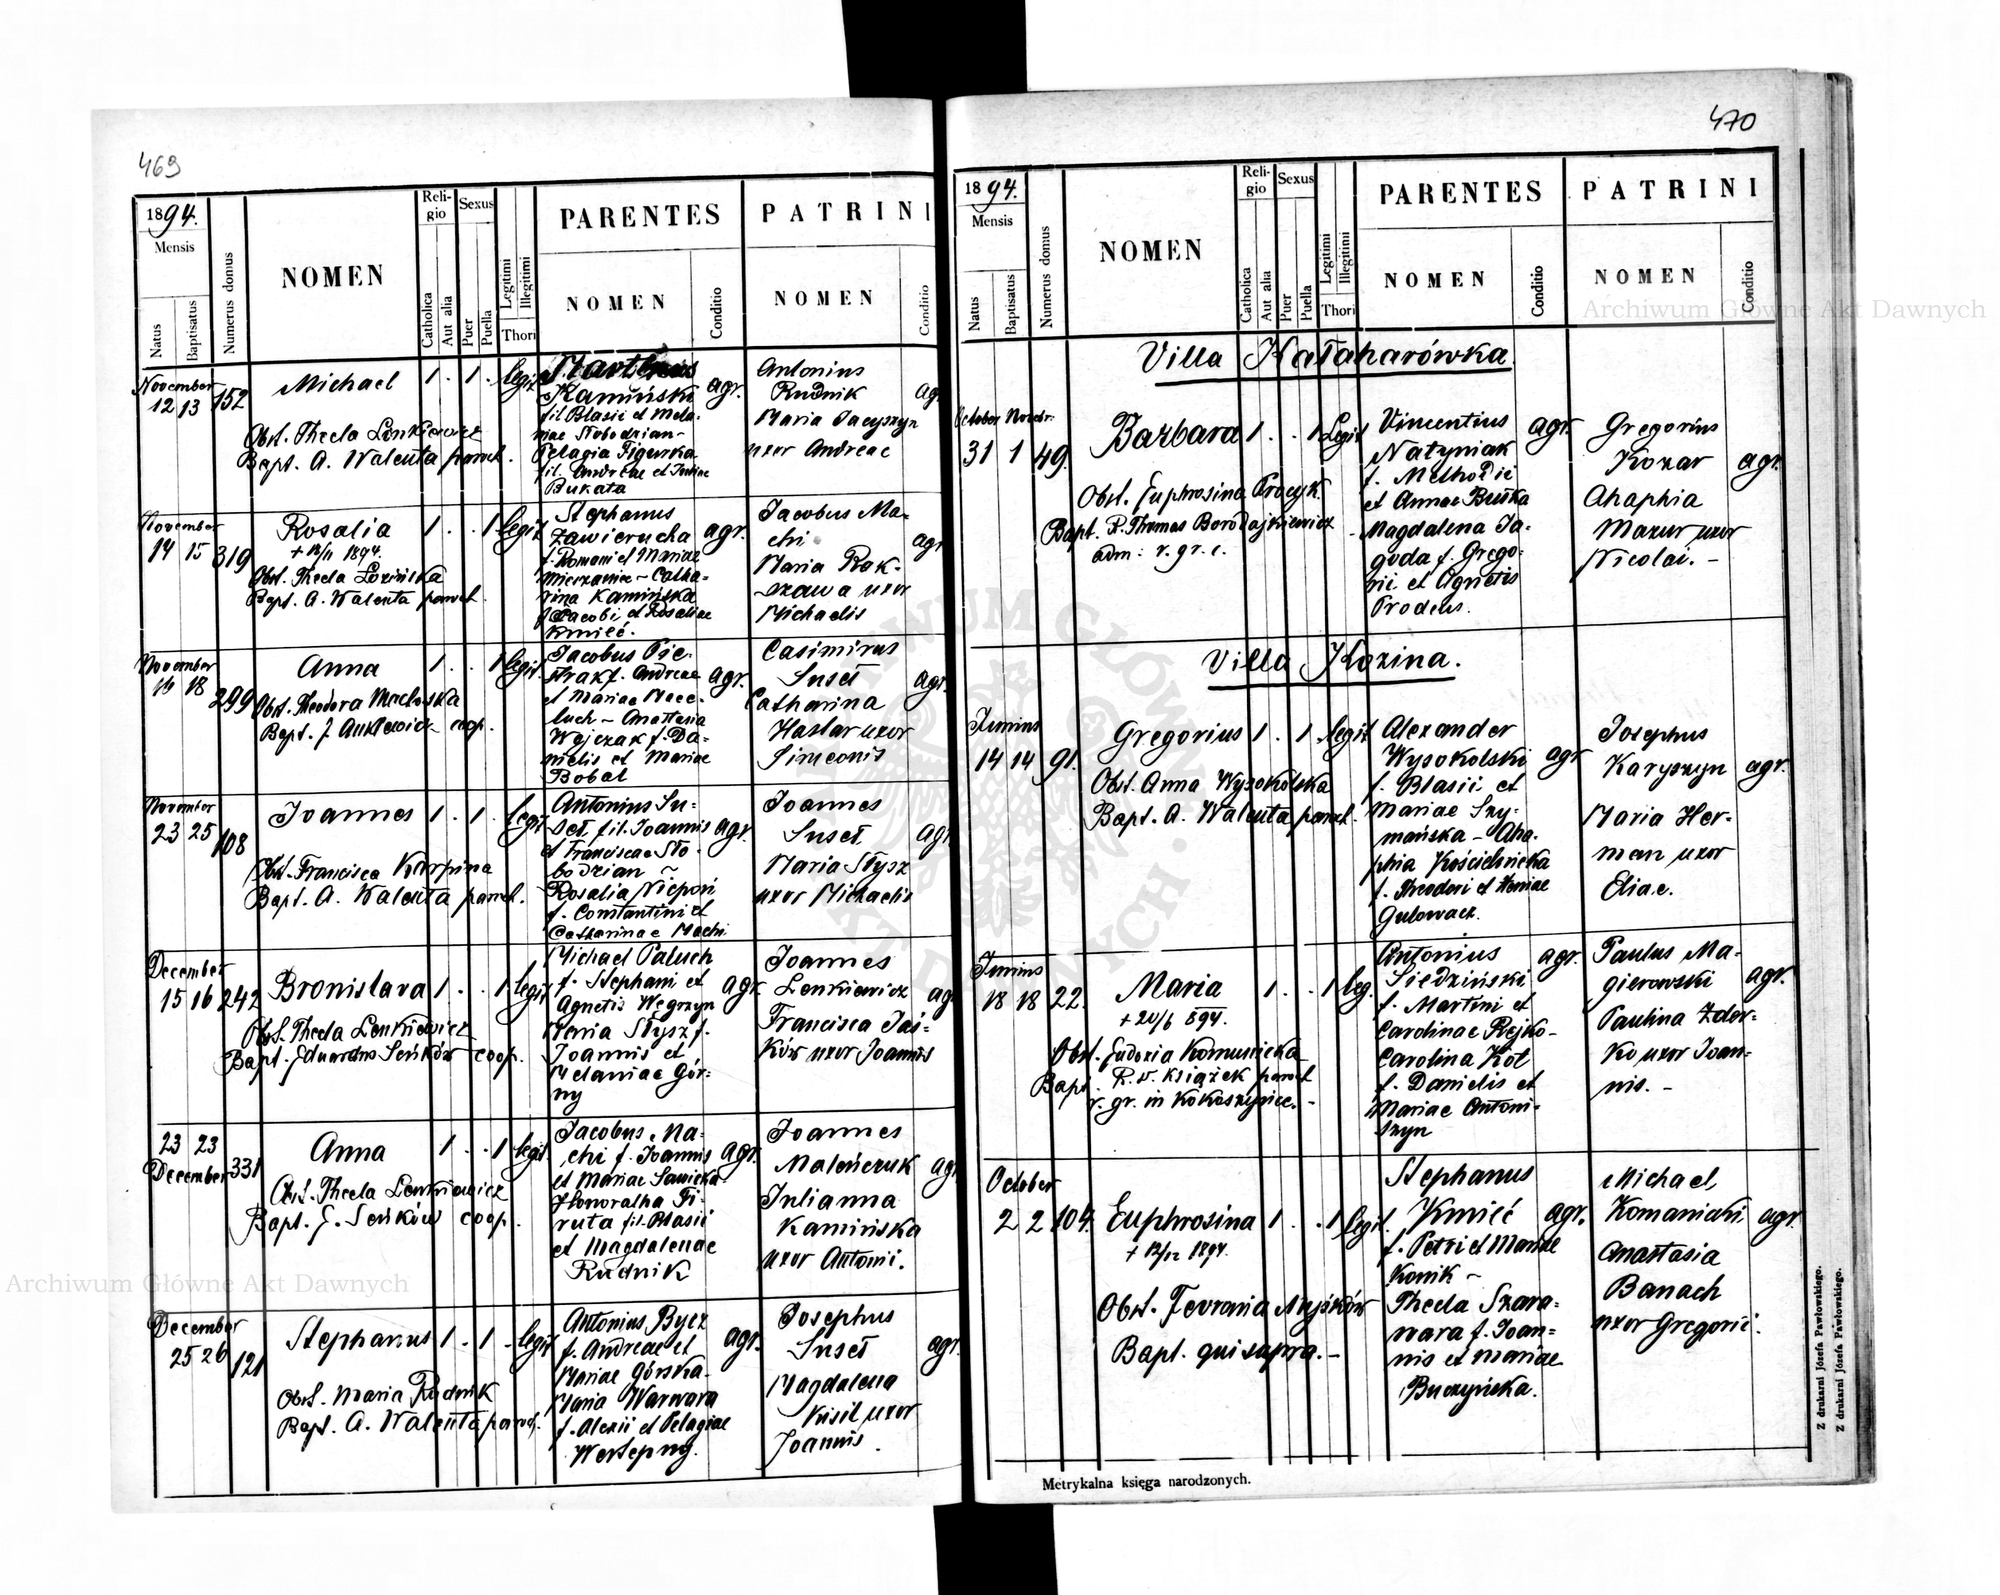 469
1894.
Mensis
Natus
Baptisatus
Numerus domus
NOMEN
Religio
Catholica
Aut alia
Sexus
Puer
Puella
Legitimi
Illegitimi
Thori
PARENTES
NOMEN
Conditio
PATRINI
NOMEN
Conditio
November
12 13
152
Michael
1 . 1 . legit
Obst. Thecla Lenkiewicz
Bapt. A. Walenta paroch.
Kamiński
fil. Blasii et Mela-
niae Słobodzian -
Pelagia Figurka
fil. Andreae et
Bukata
agr.
Antonius
Rudnik
Maria Jacyszyn
uxor Andreae
agr.
November
14 15
319
Rosalia
+ 18/11 1894.
1 . . 1 legit
Obst. Thecla Łozińska
Bapt. A. Walenta paroch.
Stephanus
Zawierucha
f. Romani et Mariae
- Catha-
rina Kamińska
f. Jacobi et Rosaliae
Kmieć.
agr.
Jacobus Ma-
chi
Maria Rak-
szawa uxor
Michaelis
agr.
November
16 18
299
Anna
1 . . 1 legit.
Obst. Theodora
Bapt. J. coop.
Jacobus Pie-
strak f. Andreae
et Mariae Mace-
luch - Anastasia
Wojczak f. Da-
nielis et Mariae
Bobal
agr.
Casimirus
Suset
Catharina
Haslar uxor
Simeonis
agr.
November
23 25
108
Joannes
1 . 1 . legit
Obst. Francisca Karpina
Bapt. A. Walenta paroch.
Antonius Su-
set fil. Joannis
et Franciscae Sło-
bodzian ~
Rosalia Niepoń
f. Constantini et
Catharinae Machi
agr.
Joannes
Suset
Maria Słysz
uxor Michaelis
agr.
December
15 16
242
Bronislava
1 . . 1 legit
Obst. Thecla Lenkiewicz
Bapt. Eduardus Seńków coop.
Michael Paluch
f. Stephani et
Agnetis Węgrzyn
Maria Słysz f.
Joannis et
Melaniae Gór-
ny
agr.
Joannes
Lenkiewicz
Francisca Jaś-
ków uxor Joannis
agr.
23 23
December
331
Anna
1 . . 1 legit.
Obst. Thecla Lenkiewicz
Bapt. E. Seńków coop.
Jacobus Ma-
chi f. Joannis
et Mariae Sawicka
Honoratha Fi-
ruta fil. Blasii
et Magdalenae
Rudnik
agr.
Joannes
Maleńczuk
Julianna
Kamińska
uxor Antonii.
agr.
December
25 26
121
Stephanus
1 . 1 . legit
Obst. Maria Rudnik
Bapt. A. Walenta paroch.
Antonius Bycz
f. Andreae et
Mariae Górska-
Maria Warwara
f. Alexii et Pelagiae
Wertepny.
agr.
Josephus
Suset
Magdalena
Kisil uxor
Joannis.
agr.
470
1894.
Mensis
Natus
Baptisatus
Numerus domus
NOMEN
Religio
Catholica
Aut alia
Sexus
Puer
Puella
Legitimi
Illegitimi
Thori
PARENTES
NOMEN
Conditio
PATRINI
NOMEN
Conditio
Villa Kałaharówka.
October Novebr.
31 1
49.
Barbara
1 . . 1 Legit
Obst. Euphrosina Procyk
Bapt. P. Thomas Borodajkiewicz
adm: r. gr. c.
Vincentius
Natyniak
f. Methodii
et Annae Buśka
Magdalena Ja-
goda f. Grego-
rii et Agnetis
Prodeus.
agr.
Gregorius
Kozar
Ahaphia
Mazur uxor
Nicolai. -
agr.
Villa Kozina.
Junius
14 14
91.
Gregorius
1 . 1 . legit
Obst. Anna Wysokolska
Bapt. A. Walenta paroch.
Alexander
Wysokolski
f. Blasii et
Mariae Szy-
mańska - Aha-
phia Kościelnicka
f. Theodori et
Gulowacz.
agr.
Josephus
Karyszyn
Maria Her-
man uxor
Eliae.
agr.
Junius
18 18
22.
Maria
+ 20/6 894.
1 . . 1 leg.
Obst. Eudoxia Komunicka
Bapt. R. W. Książek paroch
r. gr. in Kokoszyńce. -
Antonius
Siedziński
f. Martini et
Carolinae Rejko-
Carolina Kot
f. Danielis et
Mariae Antoni-
szyn
agr.
Paulus Ma-
gierowski
Paulina Zder-
ko uxor Joan-
nis. -
agr.
October
2 2
104.
Euphrosina
+ 12/12 1894.
1 . . 1 legit.
Obst. Fevronia Myśków
Bapt. qui supra. -
Stephanus
Kmieć
f. Petri et Mariae
Konik -
Thecla Szara-
wara f. Joan-
nis et Mariae
Buczyńska.
agr.
Michael
Komanicki
Anastasia
Banach
uxor Gregorii.
agr.
Metrykalna księga narodzonych.
Z drukarni Józefa Pawłowskiego.
Z drukarni Józefa Pawłowskiego.
Archiwum Główne Akt Dawnych
Archiwum Główne Akt Dawnych
ARCHIWUM GŁÓWNE AKT DAWNYCH